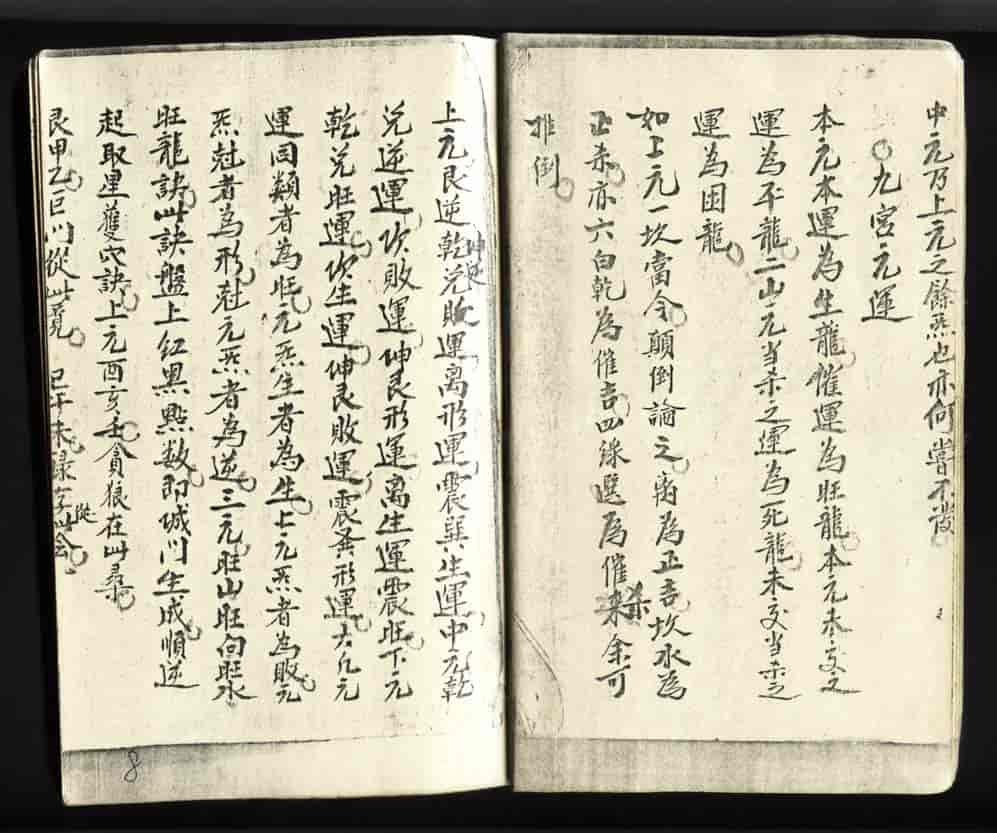 中元乃上元之餘炁也亦何嘗不發
九宮元運
本元本運為生龍催運為旺龍本元未交之
運為平龍二山元当杀之運為死龍未交当杀之
運為困龍
如上元一坎當令顛倒論之离為正吉坎水為
正杀亦六白乾為催吉四綠選為催杀余可
推倒
上元艮逆乾兌敗運离形運震巽生運中元乾
坤逆
兌逆運坎敗運坤艮形運离生運震旺下元
乾兌旺運坎生運坤艮敗運震巽形運大凡元
運同類者為旺元炁生者為生上元炁者為敗元
炁尅者為形尅元炁者為逆三元旺山旺向旺水
旺龍訣此訣盤上紅黑點数即城門生成順逆
起取星蓂氏訣上元酉亥壬貪狼在此尋
艮甲乙巳门從此覓 巳午未祿存從此会
8